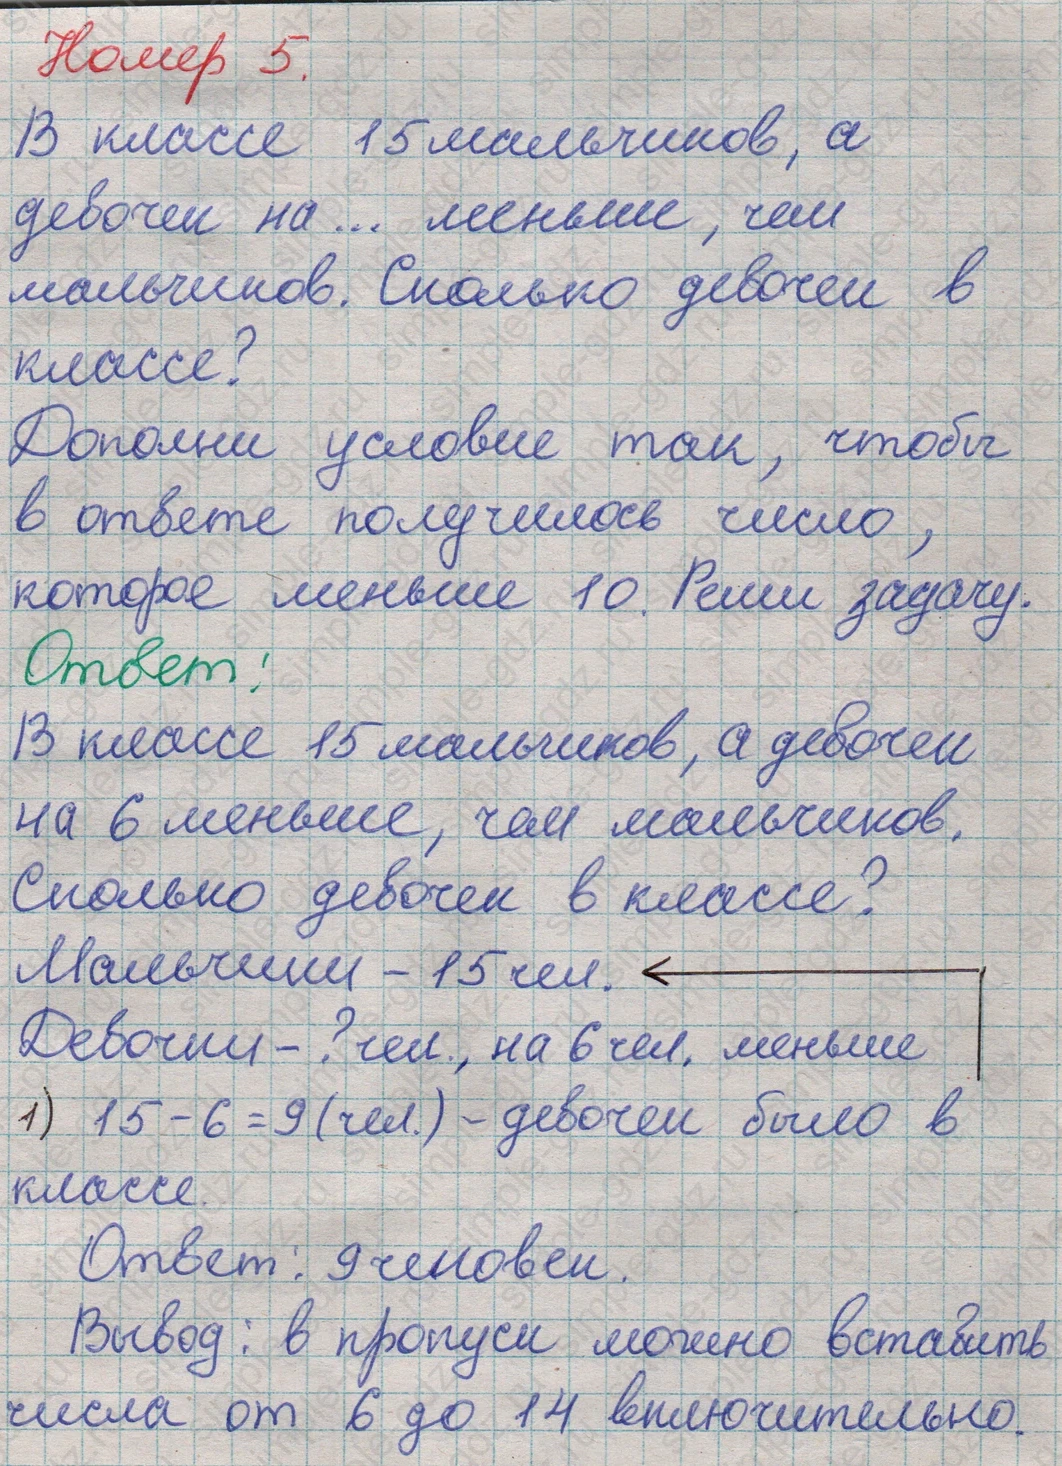 Номер 5.
В классе 15 мальчиков, а
девочек на ... меньше, чем
мальчиков. Сколько девочек в
классе?
Дополни условие так, чтобы
в ответе получилось число,
которое меньше 10. Реши задачу.
Ответ:
В классе 15 мальчиков, а девочек
на 6 меньше, чем мальчиков.
Сколько девочек в классе?
Мальчики – 15 чел.
Девочки – ? чел., на 6 чел. меньше
1) 15 – 6 = 9 (чел.) – девочек было в
классе.
Ответ: 9 человек.
Вывод: в пропуск можно вставить
числа от 6 до 14 включительно.